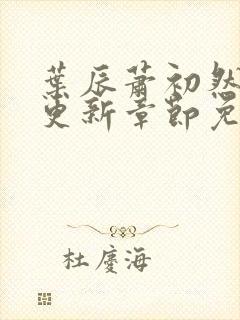 葉辰蕭初然
更新章節免
杜慶海